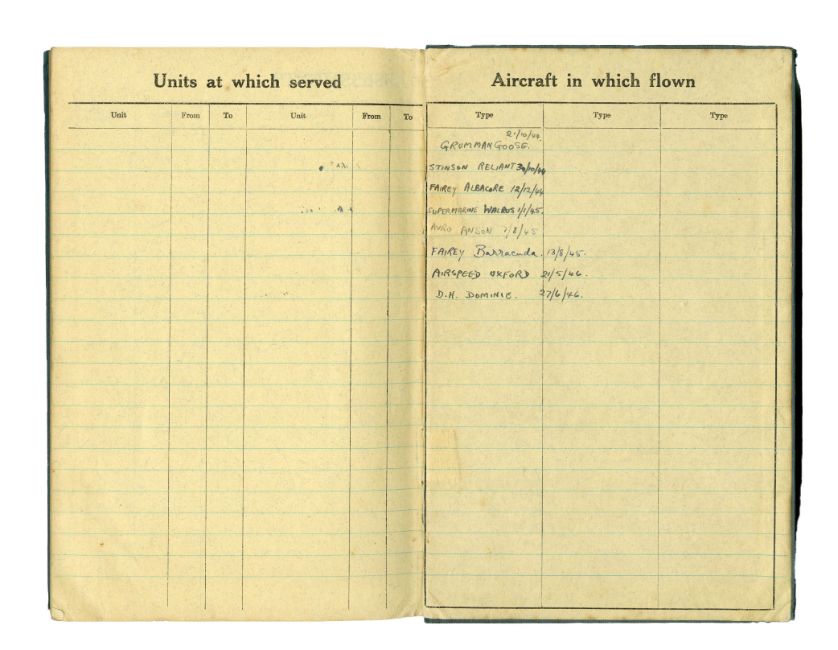 Units at which served
Unit From To Unit From To
Aircraft in which flown
Type Type Type
21/10/44.
GRUMMAN GOOSE.
STINSON RELIANT 30/10/44
FAIREY ALBACORE 12/12/44
SUPERMARINE WALRUS 1/1/45.
AVRO ANSON 7/8/45
FAIREY Barracuda. 13/8/45.
AIRSPEED OXFORD 21/5/46.
D.H. DOMINIE. 27/6/46.